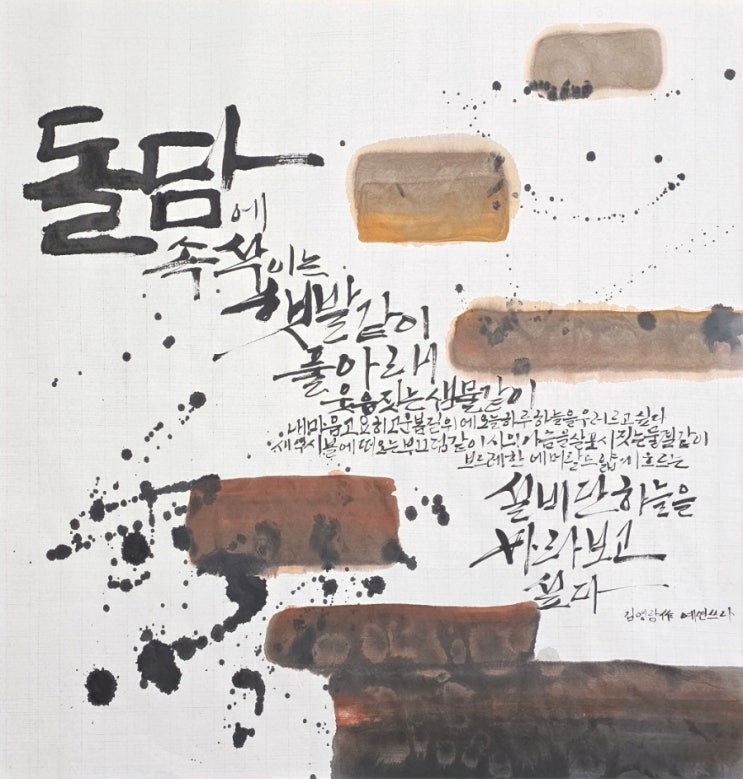 돌담에
속삭이는
햇발같이
풀아래
웃음짓는샘물같이
내마음고요히고운봄길위에오늘하루하늘을우러르고싶다
새악시볼에떠오는부끄럼같이시의가슴을살포시젖는물결같이
보드레한에메랄드얇게흐르는
실비단하늘을
바라보고
싶다
김영랑作 쓰다